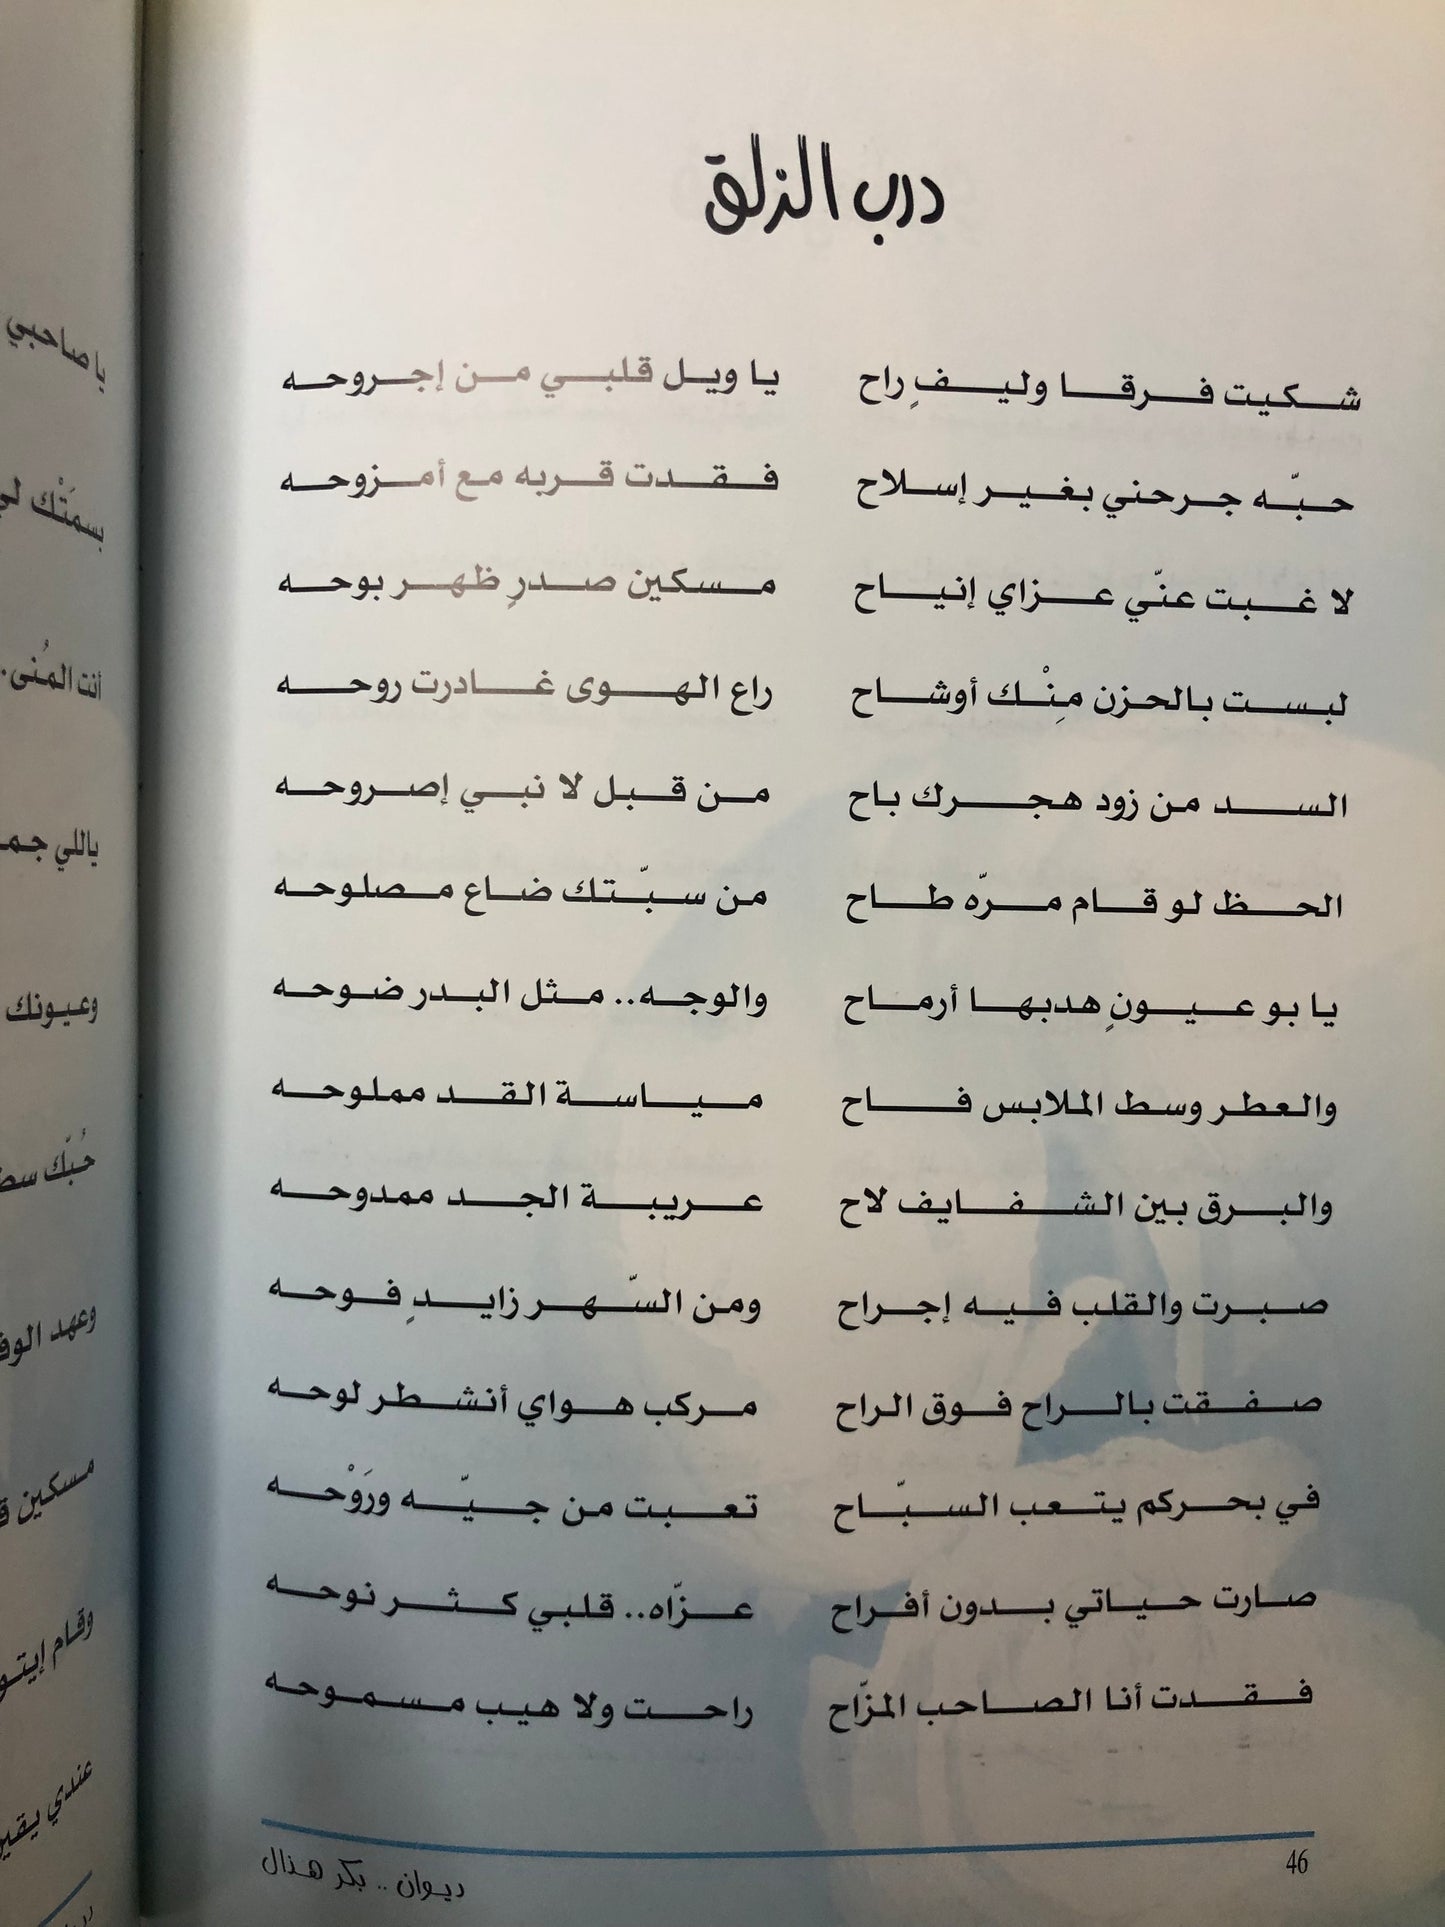 درب الزلق
شكيت فرقا وليفٍ راح يا ويل قلبي من إجروحه
حبّه جرحني بغير إسلاح فقدت قربه مع أمزوحه
لا غبت عنّي عزاي إنياح مسكين صدرٍ ظهر بوحه
لبست بالحزن مِنْك أوشاح راع الهوى غادرت روحه
السد من زود هجرك باح من قبل لا نبي إصروحه
الحظ لو قام مرّه طاح من سبّتك ضاع مصلوحه
يا بو عيونٍ هدبها أرماح والوجه.. مثل البدر ضوحه
والعطر وسط الملابس فاح مياسة القد مملوحه
والبرق بين الشفايف لاح عريبة الجد ممدوحه
صبرت والقلب فيه إجراح ومن السّهر زايدٍ فوحه
صفقت بالراح فوق الراح مركب هواي أنشطر لوحه
في بحركم يتعب السبّاح تعبت من جيّه ورَوْحه
صارت حياتي بدون أفراح عزّاه.. قلبي كثر نوحه
فقدت أنا الصاحب المزّاح راحت ولا هيب مسموحه
46
ديوان .. بكر هذال
يا صاحبي
بسمَتْك
أنت المُنى.
ياللي
وعيونك
حُبّك
وعهد
مسكين
وقام
عندي